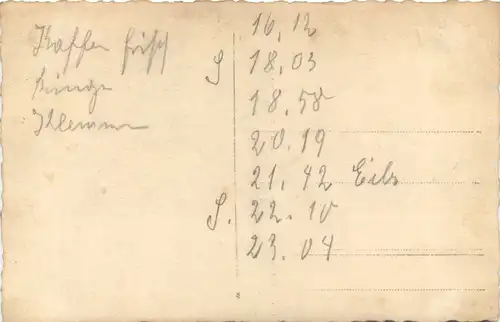 Kaffee frisch
Klemmer
16,12
S 18,03
18,58
20,19
21,42 Eilz
S. 22.10
23.04